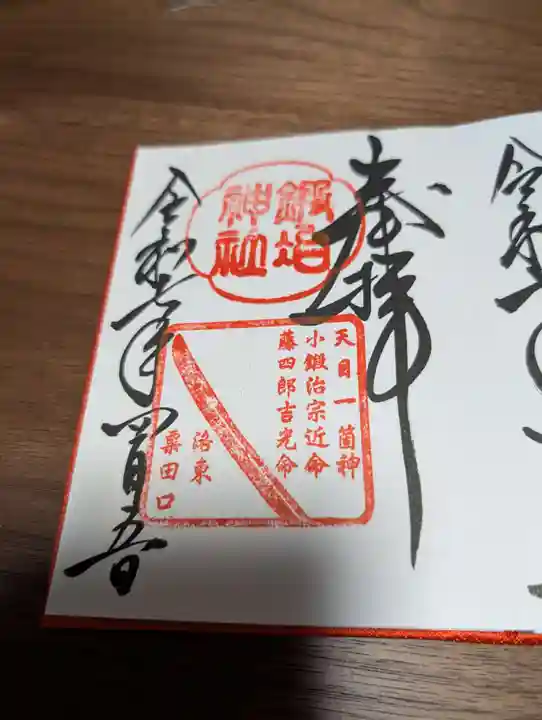 奉拝
鍛冶
神社
天目一箇神
小鍛治宗近命
藤四郎吉光命
洛東
粟田口
令和七年四月五日
令和